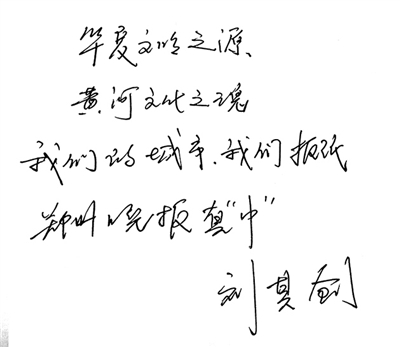 华夏文明之源、
黄河文化之魂
我们的城市.我们报纸
郑州晚报真"中"
刘其